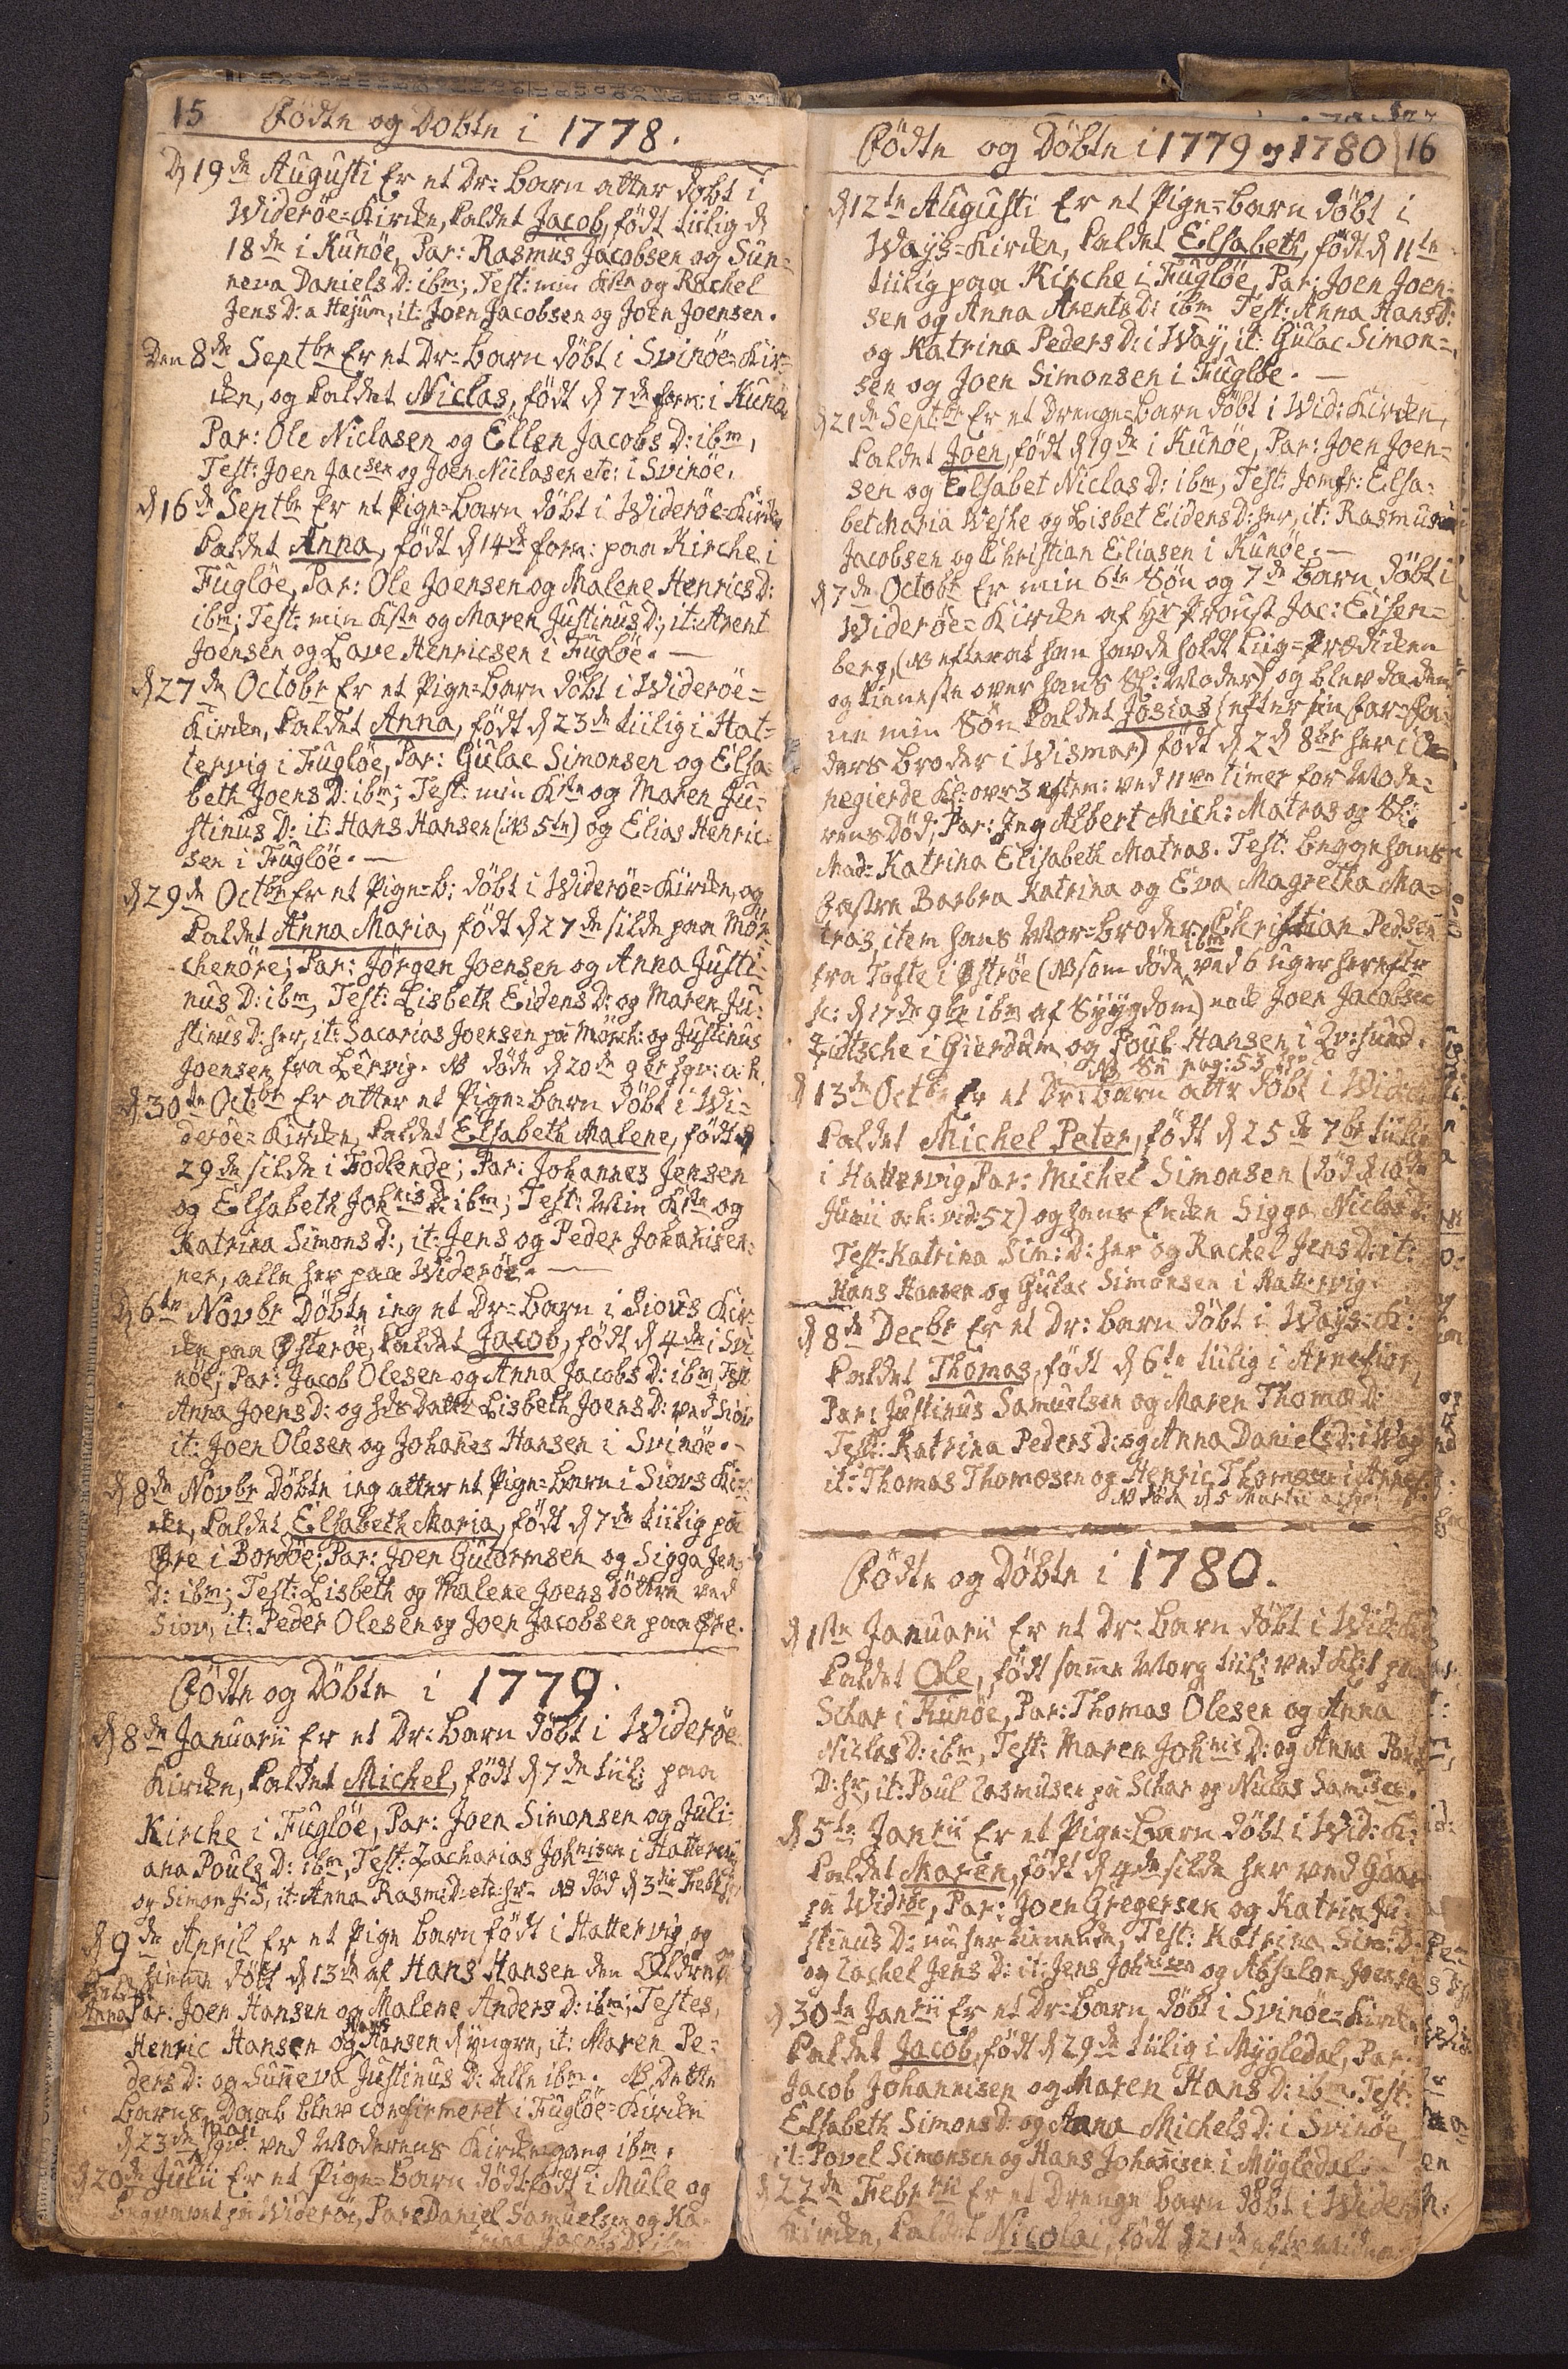 15 Födte og Döbte i 1778.
D 19de Augusti Er et Dr: barn atter döbt i
Wideröe-Kirken, kaldet Jacob, födt tiilig d
18de i Kunöe, Par: Rasmus Jacobsen og Sun-
neva Daniels D: ibm; Test: min Kste og Rachel
Jens D: a Hejum, it: Joen Jacobsen og Joen Joensen.
Den 8de Septbr Er et Dr-barn döbt i Svinöe-Kir-
ken, og kaldet Niclas, födt d 7de forn: i Kunöe
Par: Ole Niclasen og Ellen Jacobs D: ibm,
Test: Joen Jacsen og Joen Niclasen etc: i Svinöe.
d 16de Septbr Er et Pige-barn döbt i Wideröe-Kirken
kaldet Anna, födt d 14de forn: paa Kirche i
Fuglöe, Par: Ole Joensen og Malene Henrics D:
ibm; Test: min Kste og Maren Justinus D:, it: Arent
Joensen og Lave Henricsen i Fuglöe.
d 27de Octobr Er et Pige-barn döbt i Wideröe-
Kirken, kaldet Anna, födt d 23de tiilig i Hat-
tervig i Fuglöe, Par: Gulac Simonsen og Elsa-
beth Joens D: ibm; Test: min Kste og Maren Ju-
stinus D: it: Hans Hansen (NB 5te) og Elias Henric-
sen i Fuglöe.
d 29de Octbr Er et Pige-b: döbt i Wideröe-Kirken, og
kaldet Anna Maria, födt d 27de silde paa Mör-
chenöre; Par: Jörgen Joensen og Anna Justi-
nus D: ibm, Test: Lisbeth Eidens D: og Maren Ju-
stinus D: her, it: Sacarias Joensen på Mörch: og Justinus
Joensen fra Lervig. NB döde d 20de 9br sqv: a: h.
d 30te Octbr Er atter et Pige-barn döbt i Wi-
deröe-Kirken, kaldet Elsabeth Malene, födt d
29de silde i Fodlende; Par: Johannes Jensen
og Elsabeth Johnis D: ibm; Test: Min Kste og
Katrina Simons D:, it: Jens og Peder Johanisen-
ner, alle her paa Wideröe.
D 6te Novbr Döbte ieg et Dr-barn i Siovs Kir-
ken paa Österöe, kaldet Jacob, födt d 4de i Svi
nöe; Par: Jacob Olesen og Anna Jacobs D: ibm, Test:
Anna Joens D: og hds Datter Lisbeth Joens D: ved Siov
it: Joen Olesen og Johañes Hansen i Svinöe.
d 8de Novbr Döbte ieg atter et Pige-barn i Siovs Kir-
ken, kaldet Elsabeth Maria, födt d 7de tiilig på
Öre i Bordöe; Par: Joen Gutormsen og Sigga Jens
D: ibm; Test: Lisbeth og Malene Joens döttre ved
Siov, it: Peder Olesen og Joen Jacobsen paa Öre.
Födte og Döbte i 1779.
d 8de Januarii Er et Dr: barn döbt i Wideröe
Kirken, kaldet Michel, födt d 7de tiil: paa
Kirche i Fuglöe, Par: Joen Simonsen og Juli-
ana Pouls D: ibm, Test: Zacharias Johnisen i Hattervig
og Simon J: S, it: Anna Rasm: D: etc: hr- NB död d 3die Febr
d 9de April Er et Pige barn födt i Hattervig og
hieme döbt d 13de af Hans Hansen den Eldre
kaldet Anna Par: Joen Hansen og Malene Anders D: ibm; Testes,
Henric Hansen og Hans Hansen d yngre, it: Maren Pe-
ders D: og Suñeva Justinus D: alle ibm. NB Dette
barns Daab blev confirmeret i Fuglöe-Kirken
d 23de Maji sqv: ved Moderens Kirkegang ibm.
d 20de Julii Er et Pige-barn dödfödt i Mule og
begravet på Wideröe, Par: Daniel Samuelsen og Ka-
trina Jacobs D: ibm
Födte og Döbte i 1779 og 1780 16
d 12te Augusti Er et Pige-barn döbt i
Ways-Kirken, kaldet Elsabeth, födt d 11te
tiilig paa Kirche i Fuglöe, Par: Joen Joen-
sen og Anna Arents D: ibm Test: Anna Hans D:
og Katrina Peders D: i Way, it: Gulac Simon-
sen og Joen Simonsen i Fuglöe.
d 21de Septbr Er et Drenge-barn döbt i Wid: Kirken,
kaldet Joen, födt d 19de i Kunöe, Par: Joen Joen-
sen og Elsabet Niclas D: ibm, Test: Jomfr: Elsa-
bet Maria Weyhe og Lisbet Eidens D: her, it: Rasmus
Jacobsen og Christian Eliasen i Kunöe.
d 7de Octobr Er min 6te Sön og 7de barn döbt i
Wideröe-Kirken af Hr Proust Jac: Eisen-
berg, (NB efterat han havde holdt Liig-Prædiken
og tieneste over hans Sl: Moder) og blev da den-
ne min Sön kaldet Josias (efter sin Far-Fa-
ders broder i Wismar) födt d 2d 8br her i de-
negierde Kl: ovr 3 eftm: ved 11ve timer for Mode-
rens Död; Par: Jeg Albert Mich: Matras og Sl:
Mad: Katrina Elisabeth Matras. Test: begge hans
Fastre Barbra Katrina og Eva Magretha Ma-
tras, item hans Mor-broder Christian Pedsen
fra Tofte i Öströe (NB som döde ibm ved 6 uger herefter
sc: d 17de 9br ibm af Syygdom) nock Joen Jacobsen
Lidtsche i Gierdum og Poul Hansen i Qv:sund.
NB Su pag: 53
d 13de Octbr Er et Dr: barn attr döbt i Wider
kaldet Michel Peter, födt d 25de 7br tiilig
i Hattervig Par: Michel Simonsen (död d 10de
Junii a: h: vid: 52) og hans Enken Sigga Niclas D:
Test: Katrina Sim: D: her og Rachel Jens D: it:
Hans Hansen og Gulac Simonsen i Hattervig.
d 8de Decbr Er et Dr: barn döbt i Ways-K:
kaldet Thomas, födt d 6te tiilig i Arnefior,
Par: Justinus Samuelsen og Maren Thomæ D:
Test: Katrina Peders D: og Anna Daniels D: i Way
it: Thomas Thomæsen og Henric Thomæsen i Arnef:
NB döde d 5 Martii
Födte og Döbte i 1780.
d 1ste Januarii Er et Dr: barn döbt i Wid: K
kaldet Ole, födt same Morg tiil: ved Kl: 1 på
Schar i Kunöe, Par: Thomas Olesen og Anna
Niclas D: ibm, Test: Maren Johnis D: og Anna Pouls
D: hr, it: Poul Rasmusen på Schar og Niclas Samsen.
d 5te Janrii Er et Pige-barn döbt i Wid: K:
kaldet Maren, födt d 4de silde her ved Gaar
på Widröe, Par: Joen Gregersen og Katrin Ju-
stinus D: nu her tienende, Test: Katrina Sim: D:
og Rachel Jens D: it: Jens Johnisen og Absalon Joensen
d 30te Janrii Er et Dr: barn döbt i Svinöe-Kirke
kaldet Jacob, födt d 29de tiilig i Mygledal, Par:
Jacob Johannisen og Maren Hans D: ibm. Test:
Elsabeth Simons D: og Anna Michels D: i Svinöe,
it: Povel Simonsen og Hans Johañisen i Mygledal.
d 22de Febrrii Er et Drenge barn döbt i Wideröe-
Kirken, kaldet Nicolai, födt d 21de